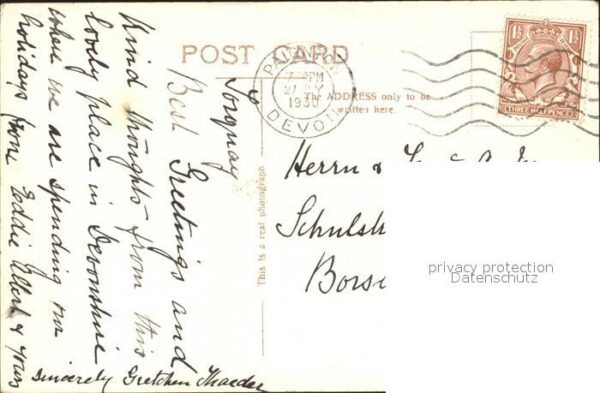 POST CARD
PAIGNTON
7 PM
27
1930
DEVON
THREE HALFPENCE
The ADDRESS only to be
written here
This is a real photograph
Torquay
Best Greetings and
Kind thoughts from this
lovely place in Devonshire
where we are spending our
holidays from Eddie Albert & yours
sincerely Gretchen Thaeder
Herrn
Schulst
Borsi
privacy protection
Datenschutz